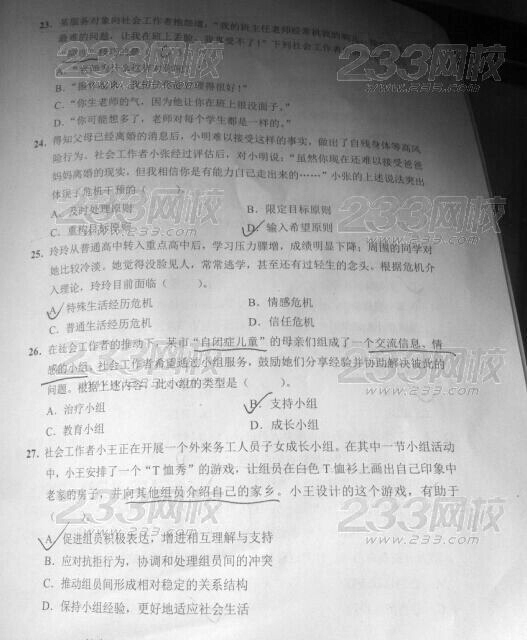 23. 某服务对象向社会工作者抱怨道，“我的班主任老师经常
最难的问题，让我在班上丢脸，我真受不了！”下列社会工作者
A. “
B. “
C. “你生老师的气，因为他让你在班上很没面子。”
D. “你可能想多了，老师对每个学生都是一样的。”
24. 得知父母已经离婚的消息后，小明难以接受这样的事实，做出了自残身体等高风
险行为。社会工作者小张经过评估后，对小明说：“虽然你现在还难以接受爸爸
妈妈离婚的现实，但我相信你是有能力自己走出来的……”小张的上述说法突出
体现了危机干预的（ ）。
A. 及时处理原则 B. 限定目标原则
C. 重构目标原则 D. 输入希望原则
25. 玲玲从普通高中转入重点高中后，学习压力骤增，成绩明显下降；周围的同学对
她比较冷淡。她觉得没脸见人，常常逃学，甚至还有过轻生的念头。根据危机介
入理论，玲玲目前面临（ ）。
A. 特殊生活经历危机 B. 情感危机
C. 普通生活经历危机 D. 信任危机
26. 在社会工作者的推动下，某市“自闭症儿童”的母亲们组成了一个交流信息、情
感的小组，社会工作者希望通过小组服务，鼓励她们分享经验并协助解决彼此的
问题。根据上述内容，此小组的类型是（ ）。
A. 治疗小组 B. 支持小组
C. 教育小组 D. 成长小组
27. 社会工作者小王正在开展一个外来务工人员子女成长小组。在其中一节小组活动
中，小王安排了一个“T恤秀”的游戏，让组员在白色T恤衫上画出自己印象中
老家的房子，并向其他组员介绍自己的家乡。小王设计的这个游戏，有助于
（ ）
A. 促进组员积极表达，增进相互理解与支持
B. 应对抗拒行为，协调和处理组员间的冲突
C. 推动组员间形成相对稳定的关系结构
D. 保持小组经验，更好地适应社会生活
233网校
www.233.com